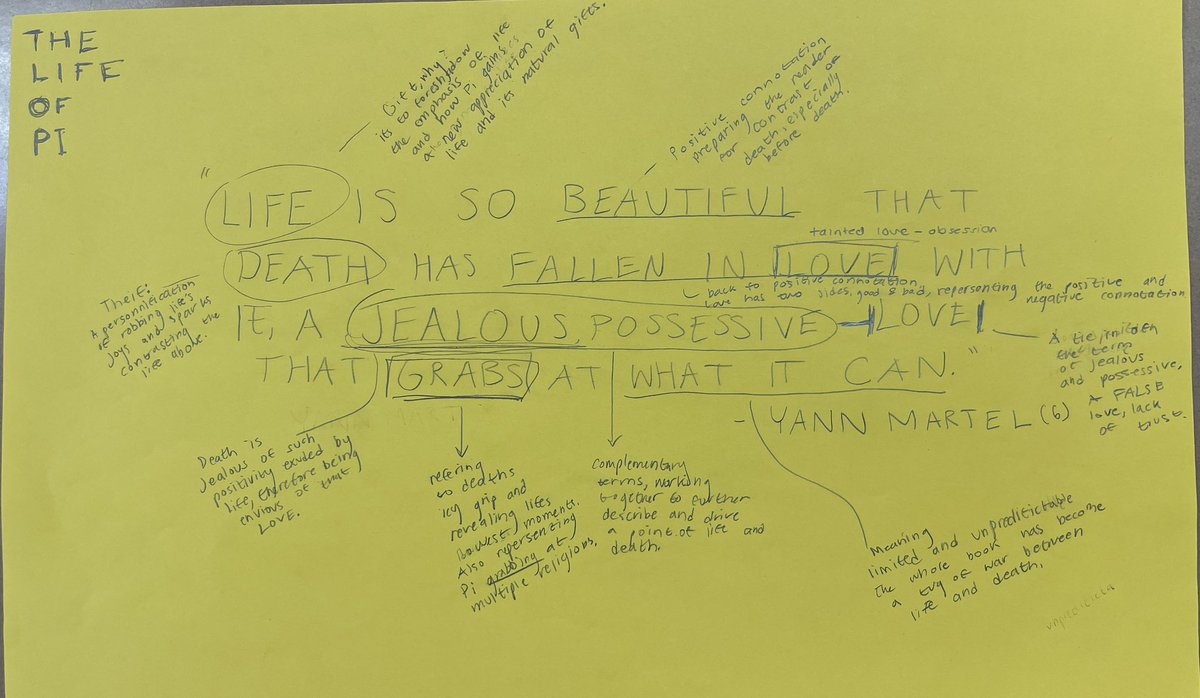 THE
LIFE
OF
PI
Gift, why?
its to foreshadow
the emphasis of life
and how Pi gains
a new appreciation of
life and its natural gifts.
Positive connotation
preparing the reader
for contrast of
death, especially
before death.
"LIFE IS SO BEAUTIFUL THAT
tainted love - obsession
DEATH HAS FALLEN IN LOVE WITH
back to positive connotation
love has two sides, good & bad, repersenting the positive and
negative connotation
IT, A JEALOUS, POSSESSIVE LOVE
THAT GRABS AT WHAT IT CAN."
- YANN MARTEL (6)
Theif:
A personnification
of robbing life's
joys and sparks
contrasting the
life above.
A tie in with
the term
of jealous
and possessive,
A FALSE
love, lack
of trust.
Death is
jealous of such
positivity exuded by
life, therefore being
envious of that
LOVE.
refering
to deaths
icy grip and
revealing lifes
lowest moments.
Also repersenting
Pi grabbing at
multiple religions.
complementary
terms, working
together to further
describe and drive
a point of life and
death.
Meaning
limited and unpredictable
the whole book has become
a tug of war between
life and death.